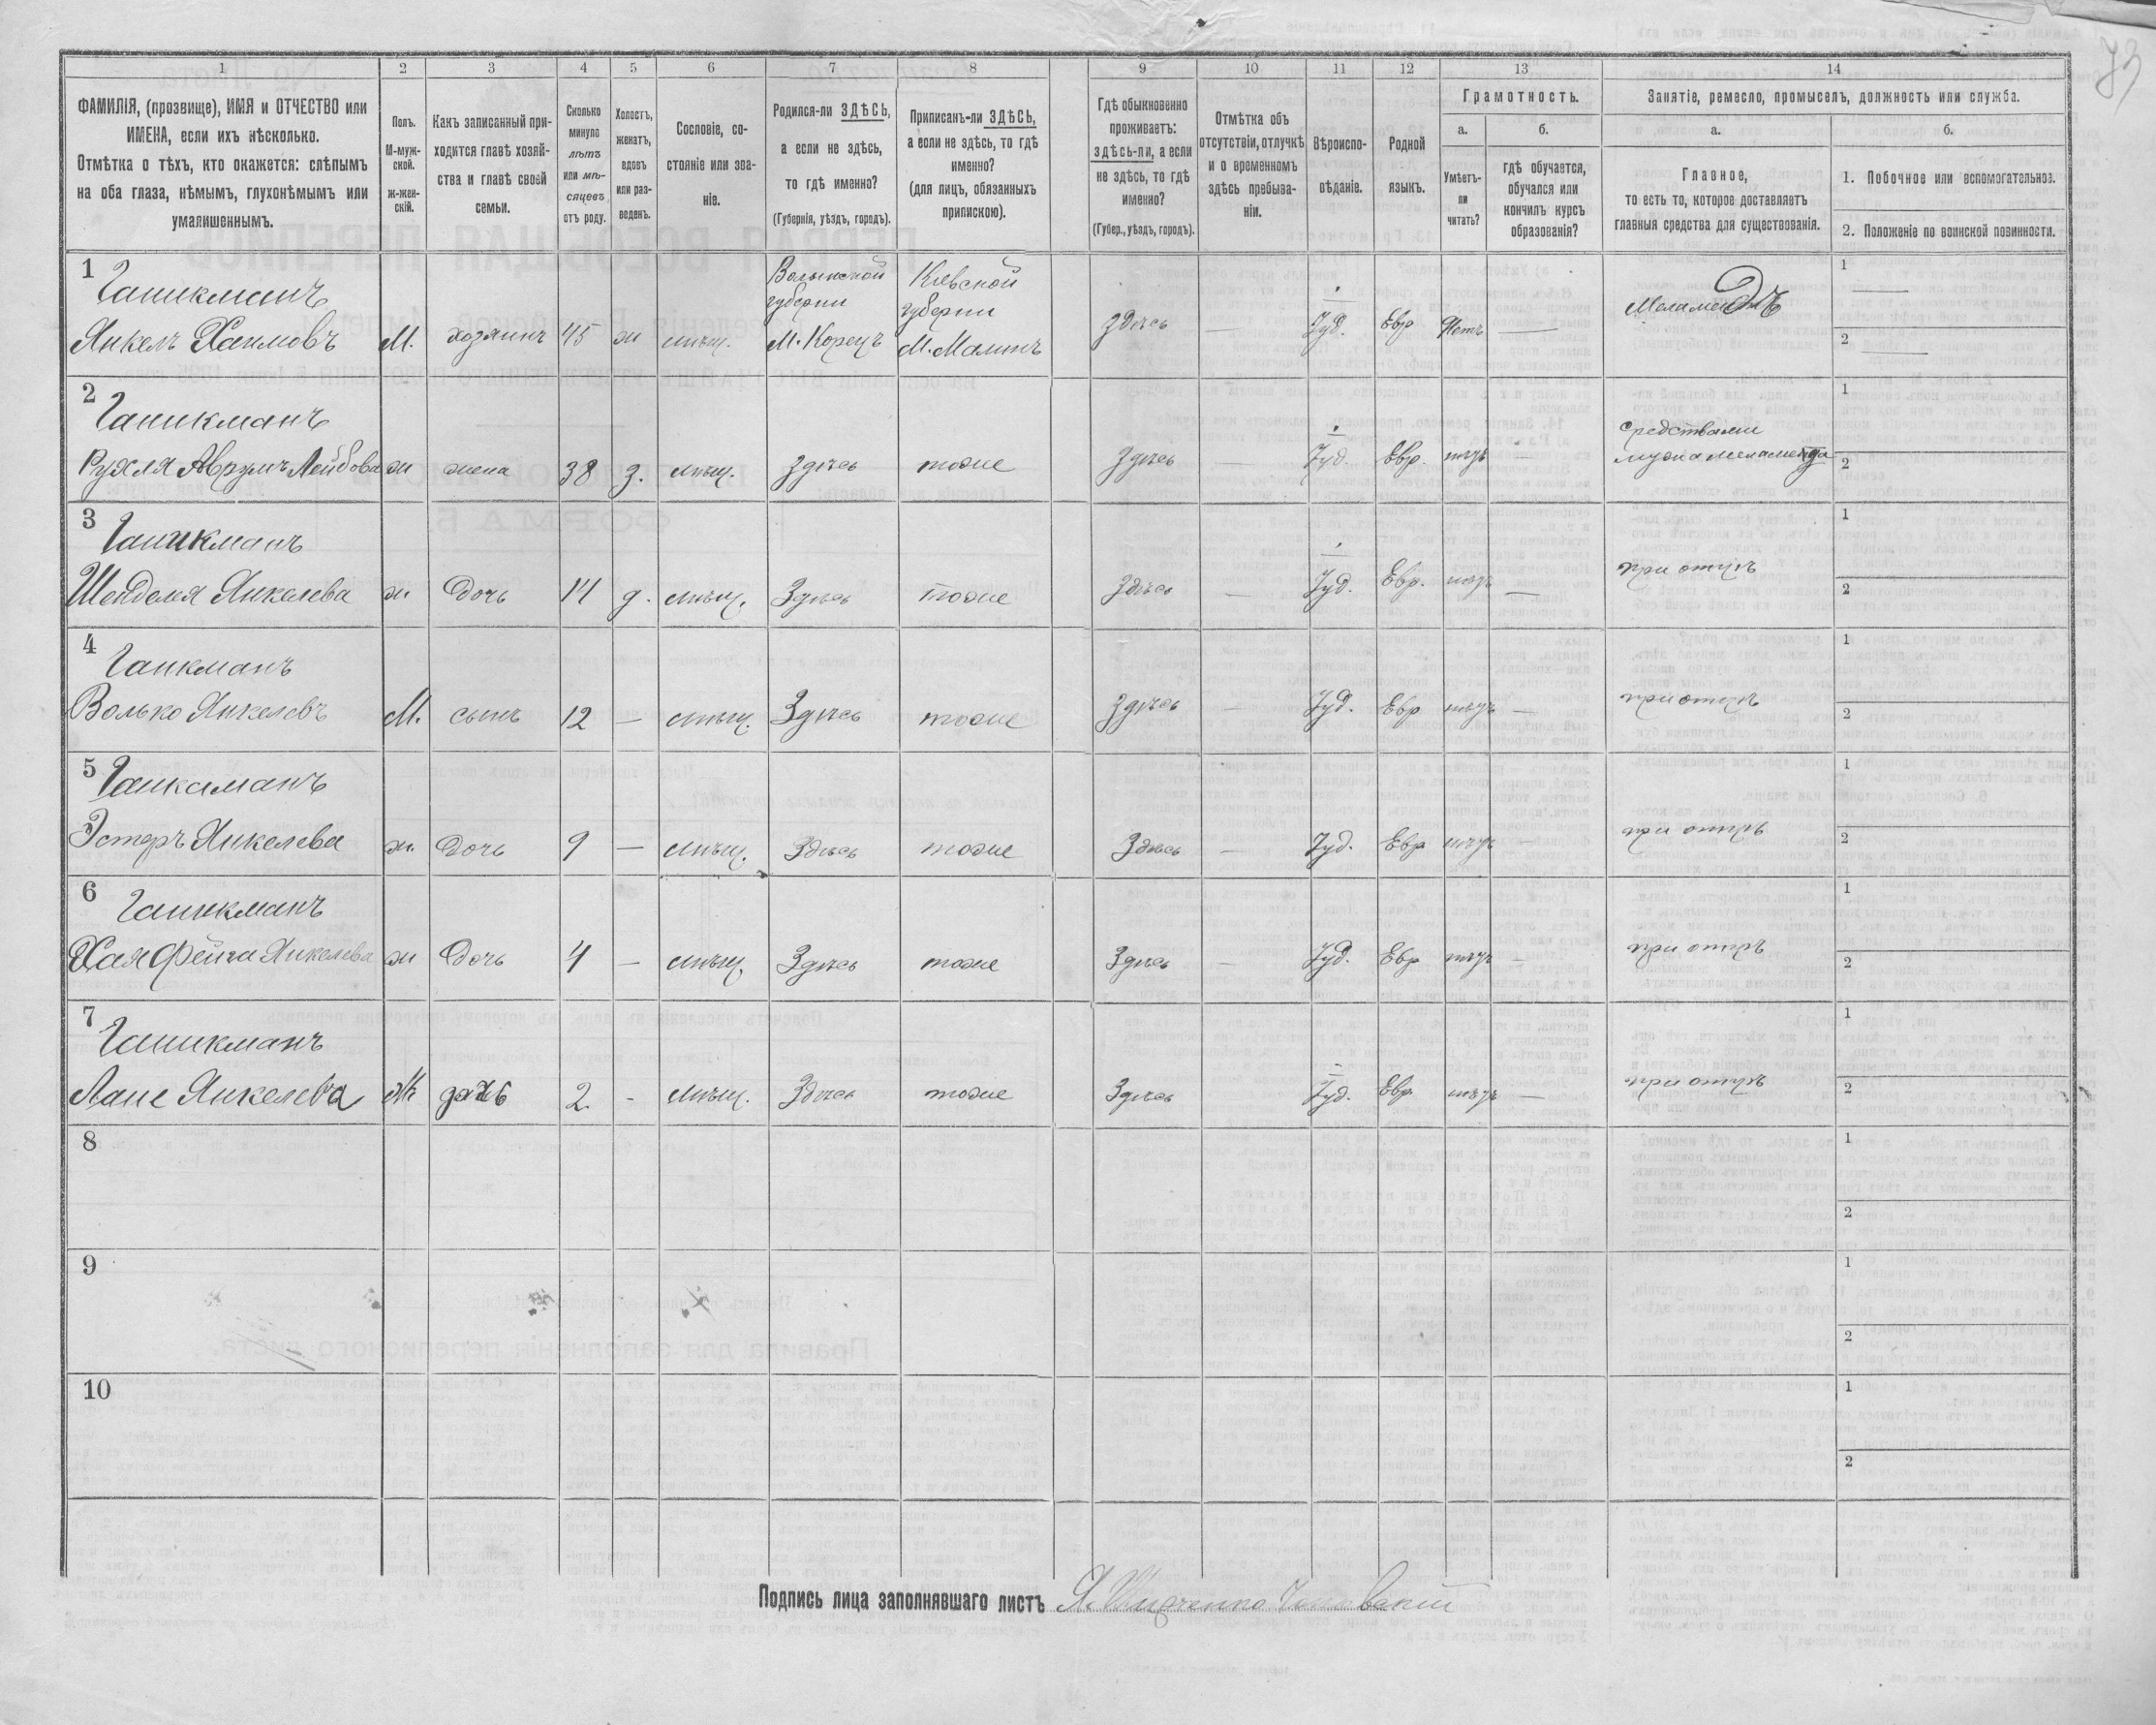 73
1 2 3 4 5 6 7 8 9 10 11 12 13 14
ФАМИЛІЯ, (прозвище), ИМЯ и ОТЧЕСТВО или
ИМЕНА, если ихъ нѣсколько.
Отмѣтка о тѣхъ, кто окажется: слѣпымъ
на оба глаза, нѣмымъ, глухонѣмымъ или
умалишеннымъ.
Полъ.
М-муж-
ской.
ж-жен-
скій.
Какъ записанный при-
ходится главѣ хозяй-
ства и главѣ своей
семьи.
Сколько
минуло
лѣтъ
или мѣ-
сяцевъ
отъ роду.
Холостъ,
женатъ,
вдовъ
или раз-
веденъ.
Сословіе, со-
стояніе или зва-
ніе.
Родился-ли ЗДѢСЬ,
а если не здѣсь,
то гдѣ именно?
(Губернія, уѣздъ, городъ).
Приписанъ-ли ЗДѢСЬ,
а если не здѣсь, то гдѣ
именно?
(для лицъ, обязанныхъ
припискою).
Гдѣ обыкновенно
проживаетъ:
здѣсь-ли, а если
не здѣсь, то гдѣ
именно?
(Губер., уѣздъ, городъ).
Отмѣтка объ
отсутствіи, отлучкѣ
и о временномъ
здѣсь пребыва-
ніи.
Вѣроиспо-
вѣданіе.
Родной
языкъ.
Грамотность.
а.
Умѣетъ-
ли
читать?
б.
гдѣ обучается,
обучался или
кончилъ курсъ
образованія?
Занятіе, ремесло, промыселъ, должность или служба.
а.
Главное,
то есть то, которое доставляетъ
главныя средства для существованія.
б.
1. Побочное или вспомогательное.
2. Положеніе по воинской повинности.
1 Ганикманъ
Янкель Хаимовъ М. хозяинъ 45 ж мѣщ.
Волынской
губерни
М. Корецъ
Кіевской
губерни
М. Малинъ
здѣсь — Іуд. Евр Нетъ —
Меламедъ
1 —
2 —
2 Ганикманъ
Рухля Аврумъ Лейбова ж жена 38 з. мѣщ. здѣсь тоже здѣсь — Іуд. Евр. нѣтъ —
средствами
мужа меламеда
1
2
3 Ганикманъ
Шейдля Янкелева ж Дочь 14 д. мѣщ. Здѣсь тоже здѣсь — Іуд. Евр. нѣтъ —
при отцѣ
1
2
4 Ганкманъ
Волько Янкелевъ М. сынъ 12 — мѣщ. Здѣсь тоже здѣсь — Іуд. Евр нѣтъ —
при отцѣ
1
2
5 Ганкаманъ
Эстеръ Янкелева ж. Дочь 9 — мѣщ. Здѣсь тоже Здѣсь — Іуд. Евр нѣтъ —
при отцѣ
1
2
6 Ганикманъ
Хая Фейга Янкелева ж Дочь 4 — мѣщ. Здѣсь тоже Здѣсь — Іуд. Евр нѣтъ —
при отцѣ
1
2
7 Ганикманъ
Янкелева Ж дочь 2 - мѣщ. Здѣсь тоже Здѣсь — Іуд. Евр. нѣтъ —
при отцѣ
1
2
8
1
2
9
1
2
10
1
2
Подпись лица заполнявшаго листъ